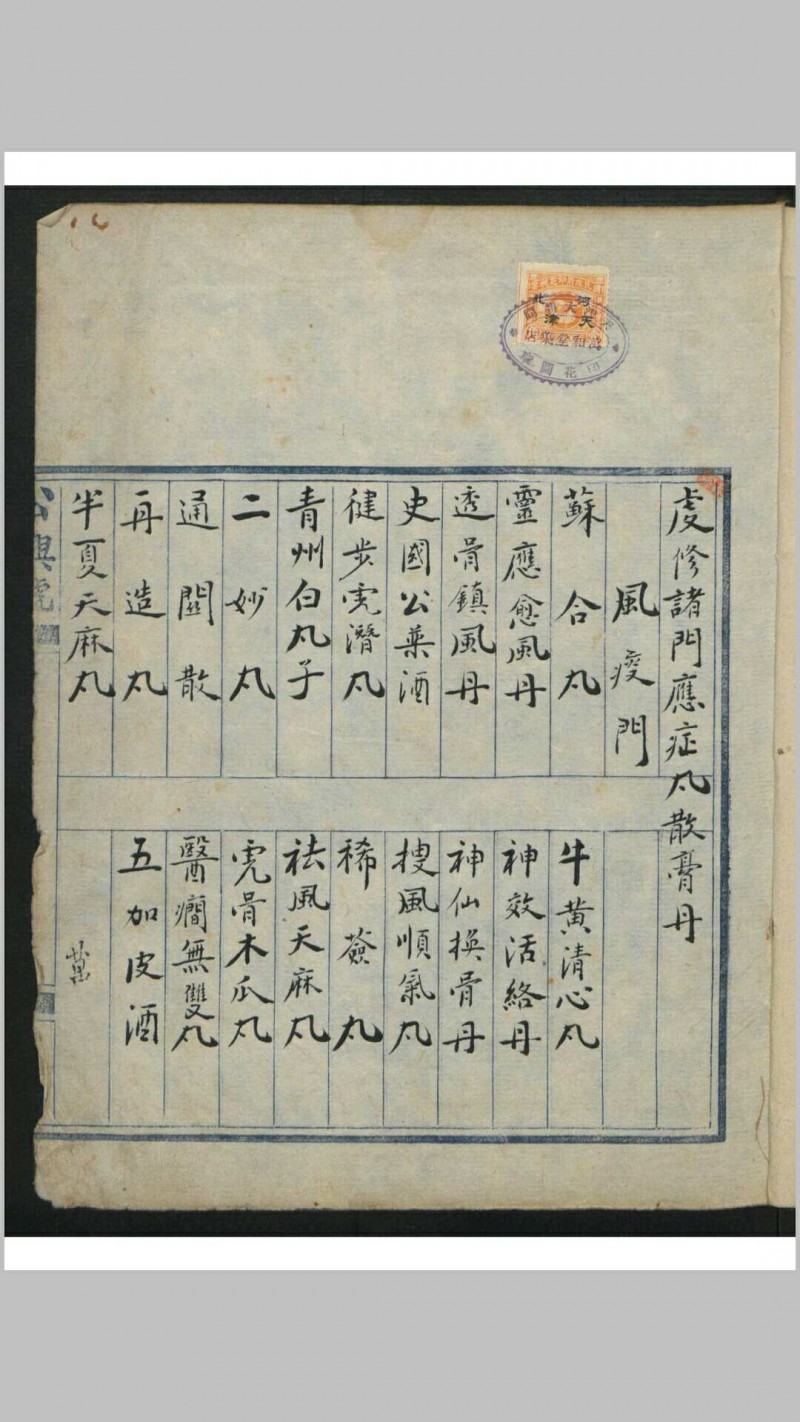 虔修諸門應症丸散膏丹
風痰門
蘇合丸
牛黃清心丸
靈應愈風丹
神效活絡丹
透骨鎮風丹
神仙換骨丹
史國公藥酒
搜風順氣丸
健步虎潛丸
稀薟丸
青州白丸子
祛風天麻丸
二妙丸
虎骨木瓜丸
通關散
醫癇無雙丸
再造丸
五加皮酒
半夏天麻丸
公興號
河北
天津
萬和堂藥店